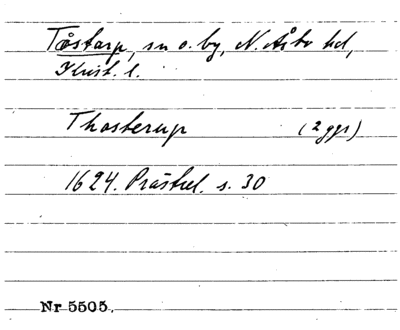 Tåstarp, sn o. by, N. Åsbo hd,
Krist. l.
Thosterup (2 ggr)
1624. Prästrel. s. 30
Nr 5505.